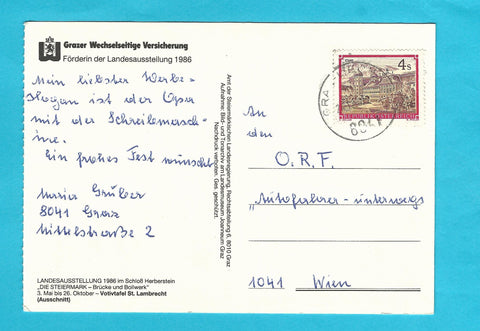 Grazer Wechselseitige Versicherung
Förderin der Landesausstellung 1986
Mein liebster Werbe-
slogan ist der Opa
mit der Schreibmasch-
ine.
Ein frohes Fest wünscht
Maria Gruber
8041 Graz
Mittelstraße 2
LANDESAUSSTELLUNG 1986 im Schloß Herberstein
„DIE STEIERMARK – Brücke und Bollwerk"
3. Mai bis 26. Oktober – Votivtafel St. Lambrecht
(Ausschnitt)
Amt der Steiermärkischen Landesregierung, Rechtsabteilung 6, 8010 Graz
Aufnahme: Bild- und Tonarchiv am Landesmuseum Joanneum Graz
Nachdruck verboten. Ges. geschützt.
4 S
REPUBLIK ÖSTERREICH
GRA
8041
An
den
O.R.F.
„Autofahrer-unterwegs
1041 Wien